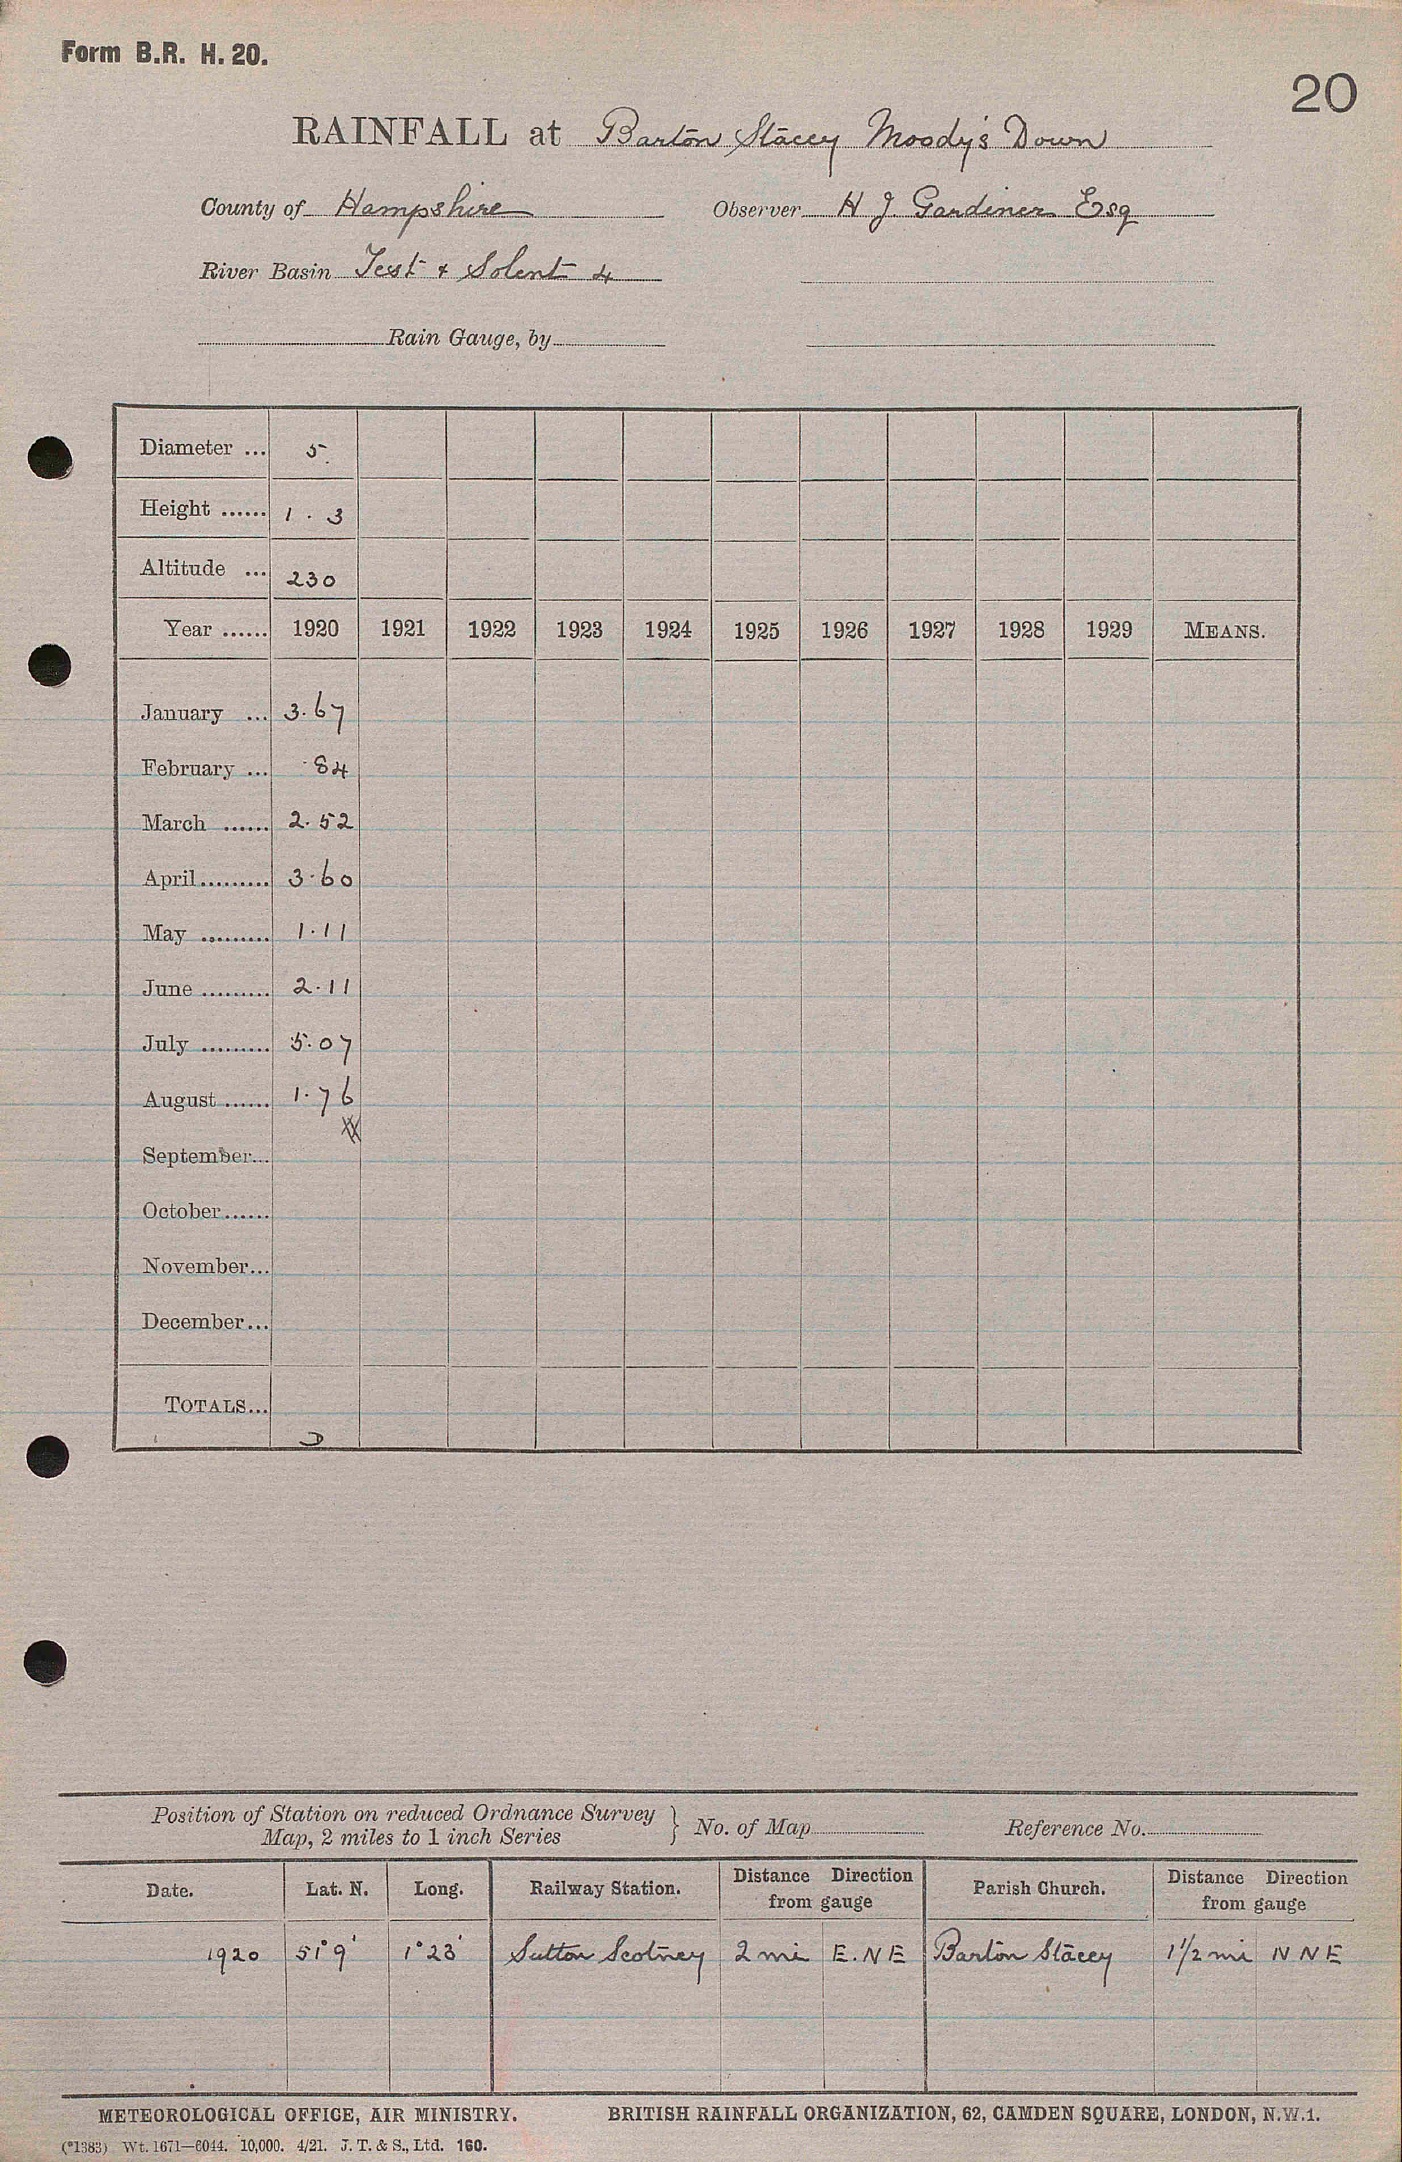 Form B.R. H. 20.
20
RAINFALL at Barton Stacey Moody's Down
County of Hampshire Observer H J. Gardiner Esq
River Basin Test & Solent 4
Rain Gauge, by
Diameter ... 5
Height ...... 1 . 3
Altitude ... 230
Year ...... 1920 1921 1922 1923 1924 1925 1926 1927 1928 1929 MEANS.
January ... 3.67
February ... .84
March ...... 2.52
April......... 3.60
May ......... 1.11
June ......... 2.11
July ......... 5.07
August ...... 1.76
September...
October......
November...
December...
TOTALS...
Position of Station on reduced Ordnance Survey
Map, 2 miles to 1 inch Series } No. of Map Reference No.
Date. Lat. N. Long. Railway Station. Distance Direction from gauge Parish Church. Distance Direction from gauge
1920 51°9' 1°23' Sutton Scotney 2 mi E.NE Barton Stacey 1½ mi NNE
METEOROLOGICAL OFFICE, AIR MINISTRY. BRITISH RAINFALL ORGANIZATION, 62, CAMDEN SQUARE, LONDON, N.W.1.
(*1383) Wt. 1671—6044. 10,000. 4/21. J. T. & S., Ltd. 160.